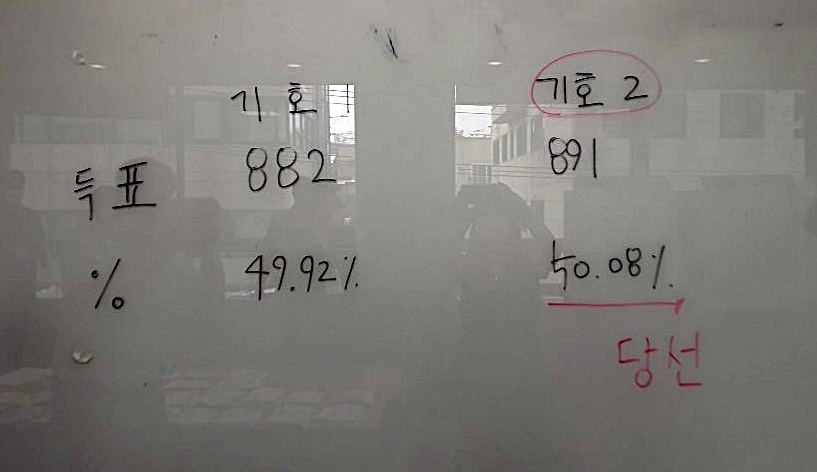 기호 기호 2
득표 882 891
% 49.92% 50.08%
당선